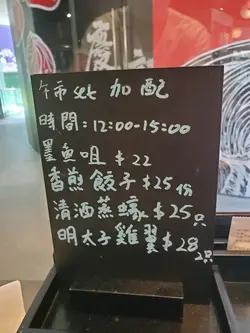 午市 set 加配
時間：12:00-15:00
墨魚咀 $22
香煎餃子 $25份
清酒蒸蠔 $25只
明太子雞翼 $28 2只
慶